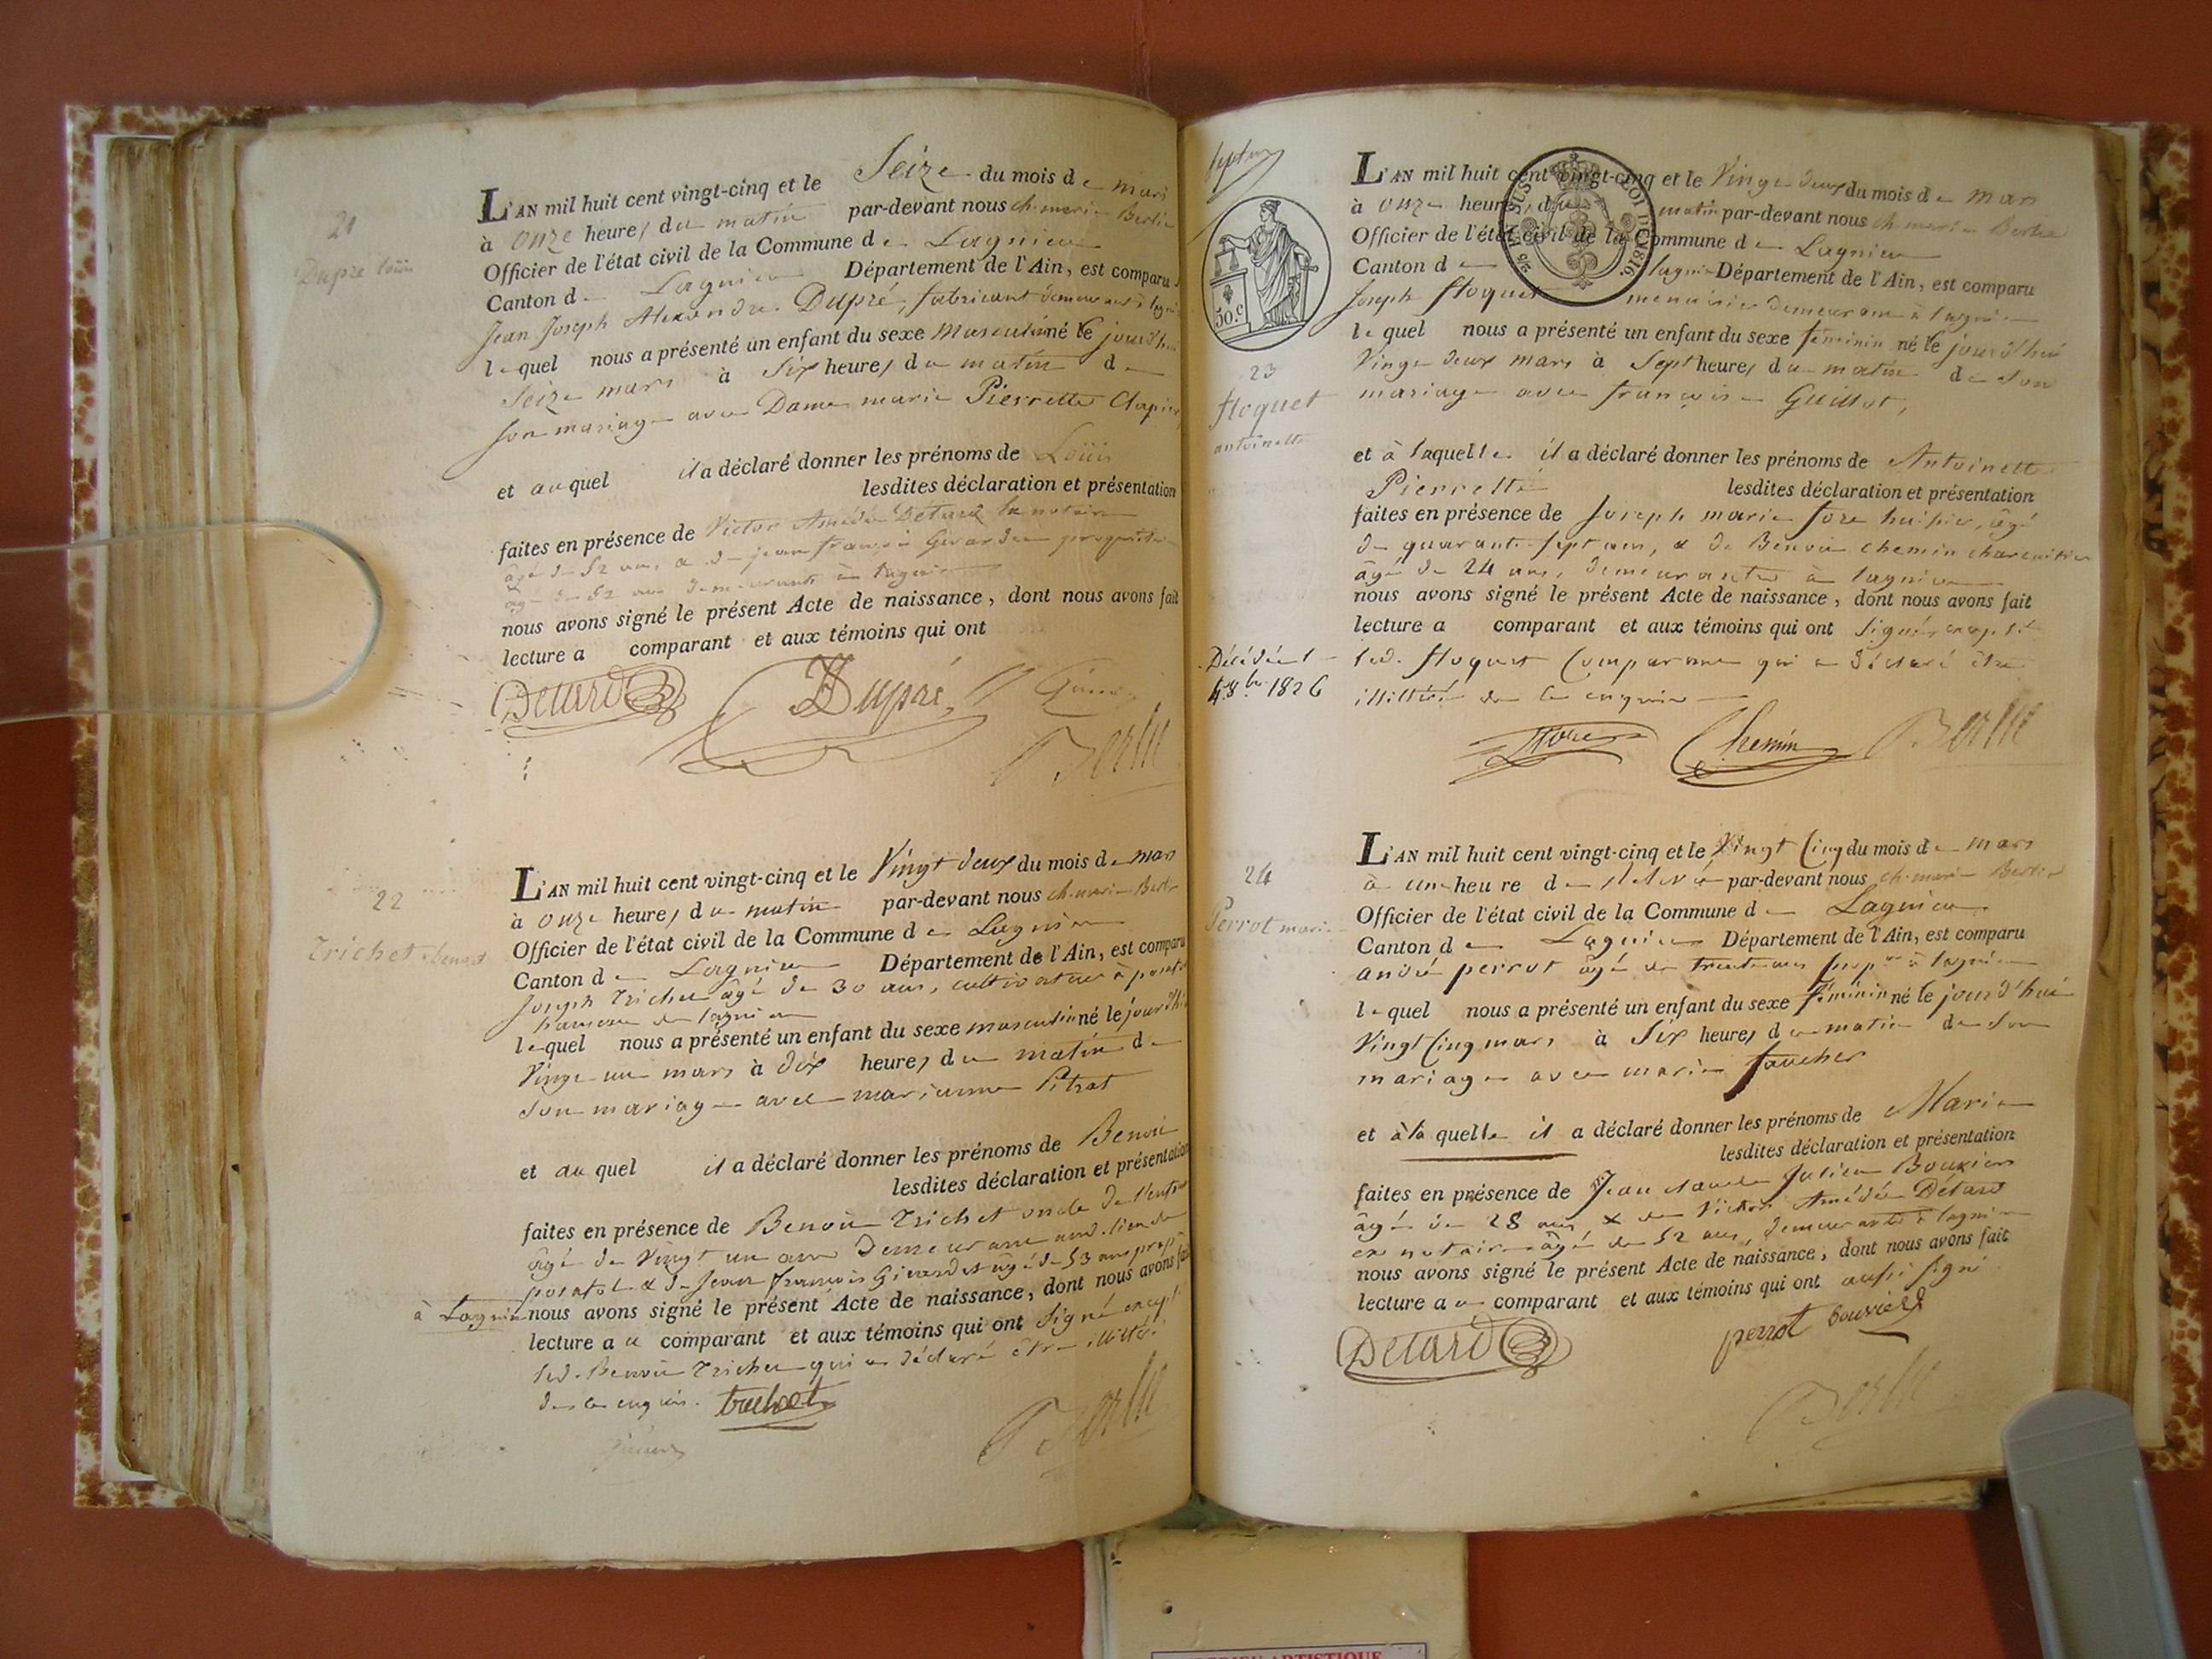 21
Dupré Loüis
L'AN mil huit cent vingt-cinq et le Seize du mois de mars
à onze heures du matin par-devant nous ch. marie Berlie
Officier de l'état civil de la Commune de Lagnieu
Canton de Lagnieu Département de l'Ain, est comparu
Jean Joseph Alexandre Dupré, fabricant demeurant à
lequel nous a présenté un enfant du sexe masculin né le jourd'hui
Seize mars à Six heures du matin de
son mariage avec Dame marie Pierrette
et auquel il a déclaré donner les prénoms de Loüis
lesdites déclaration et présentation
faites en présence de Victor Amédée Detard notaire
âgé de 52 ans, & de jean françois
âgé de 52 ans demeurants à Lagnieu
nous avons signé le présent Acte de naissance, dont nous avons fait
lecture a comparant et aux témoins qui ont
Detard Dupré
22
Trichet benoit
L'AN mil huit cent vingt-cinq et le Vingt deux du mois de mars
à onze heures du matin par-devant nous ch. marie Berlie
Officier de l'état civil de la Commune de Lagnieu
Canton de Lagnieu Département de l'Ain, est comparu
Joseph Trichet âgé de 30 ans, cultivateur à
hameau de lagnieu
lequel nous a présenté un enfant du sexe masculin né le jourd'hui
Vingt un mars à dix heures du matin de
son mariage avec marianne Pitrat
et au quel il a déclaré donner les prénoms de Benoit
lesdites déclaration et présentation
faites en présence de Benoit Trichet oncle de l'enfant
âgé de Vingt un ans demeurant aud. lieu de
& de Jean françois Girardet âgé de 53 ans prop.
à Lagnieu nous avons signé le présent Acte de naissance, dont nous avons fait
lecture au comparant et aux témoins qui ont signé excepté
led. Benoit Trichet qui a déclaré être illitéré
de ce enquis. trichet
23
floquet
antoinette
L'AN mil huit cent vingt-cinq et le Vingt deux du mois de mars
à onze heures du matin par-devant nous ch. marie Berlie
Officier de l'état civil de la Commune de Lagnieu
Canton de lagnieu Département de l'Ain, est comparu
Joseph floquet menuisier demeurant à lagnieu
lequel nous a présenté un enfant du sexe féminin né le jourd'hui
Vingt deux mars à Sept heures du matin de son
mariage avec françoise Guillot,
et à laquelle il a déclaré donner les prénoms de Antoinette
Pierrette lesdites déclaration et présentation
faites en présence de Joseph marie fore huissier, âgé
de quarante sept ans, & de Benoit chemin charcutier
âgé de 24 ans, demeurants à lagnieu
nous avons signé le présent Acte de naissance, dont nous avons fait
lecture a comparant et aux témoins qui ont signés excepté
led. floquet comparant qui a déclaré être
illitéré de ce enquis
Décédée l
4 8bre 1826
fore Chemin Berlie
50.c
LOI DE 1816.
24
Perrot marie
L'AN mil huit cent vingt-cinq et le Vingt Cinq du mois de mars
à une heure de relevée par-devant nous ch. marie Berlie
Officier de l'état civil de la Commune de Lagnieu
Canton de Lagnieu Département de l'Ain, est comparu
andré perrot âgé de trente ans prop.re à lagnieu
lequel nous a présenté un enfant du sexe féminin né le jourd'hui
Vingt Cinq mars à Six heures du matin de son
mariage avec marie faucher
et à la quelle il a déclaré donner les prénoms de Marie
lesdites déclaration et présentation
faites en présence de Jean claude Julien Bouviers
âgé de 28 ans, & de Victor Amédée Détard
ex notaire âgé de 52 ans, demeurants à lagnieu
nous avons signé le présent Acte de naissance, dont nous avons fait
lecture au comparant et aux témoins qui ont aussi signé
Detard perrot bouviers
Berlie